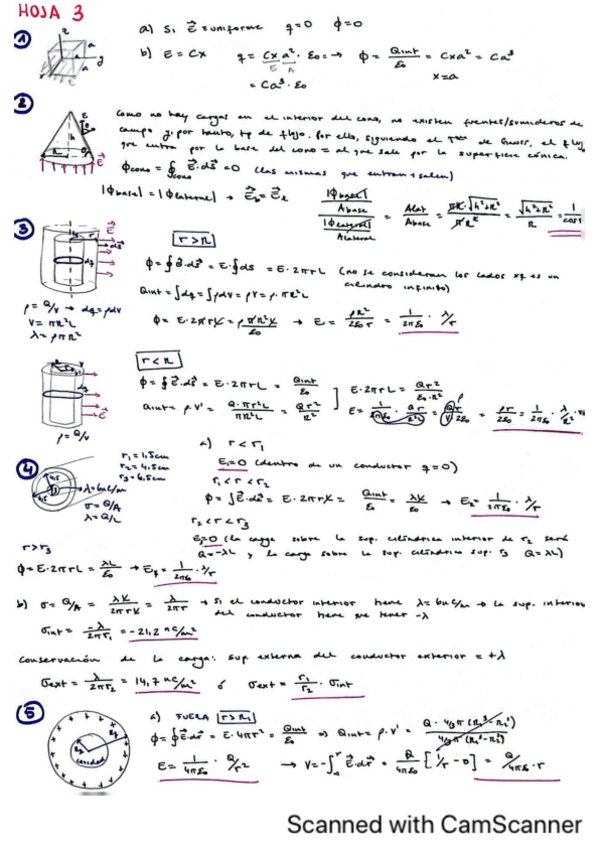 HOJA 3
① a) Si E⃗ = uniforme q=0 ϕ=0
b) E = Cx q = Cxa² · ε₀ = → ϕ = Qint/ε₀ = Cxa² = Ca³
E A x=a
= Ca³ · ε₀
②
Como no hay cargas en el interior del cono, no existen fuentes/sumideros de
campo y, por tanto, de flujo. Por ello, siguiendo el de Gauss, el
que entra por la base del cono = al que sale por la superficie cónica.
ϕcono = ∮cono E⃗·ds⃗ = 0 (las mismas que entran + salen)
|ϕbase| = |ϕlateral| →
|ϕbase|/Abase / |ϕlateral|/Alateral = Alat/Abase = πR·√(h²+R²)/πR² = √(h²+R²)/R
③ r > R
ϕ = ∮ E⃗·ds⃗ = E·∮ds = E·2πrL (no se consideran los lados xq es un
cilindro infinito)
Qint = ∫dq = ∫ρdV = ρV = ρ·πR²L
ρ = Q/V → dq = ρdV
V = πR²L
λ = ρπR²
ϕ = E·2πrL = ρπR²L/ε₀ → E = ρR²/2ε₀r = 1/2πε₀ · λ/r
r < R
ϕ = ∮ E⃗·ds⃗ = E·2πrL = Qint/ε₀
Qint = ρ·V' = Q·πr²L/πR²L = Qr²/R²
E·2πrL = Qr²/ε₀·R²
ρ = Q/V
④ r₁ = 1,5cm
r₂ = 4,5cm
r₃ = 6,5cm
λ = 6nC/m
σ = Q/A
λ = Q/L
a) r < r₁
E₁=0 (dentro de un conductor q=0)
r₁ < r < r₂
ϕ = ∫ E⃗·ds⃗ = E·2πrL = Qint/ε₀ = λL/ε₀ → E₂ = 1/2πε₀ · λ/r
r₂ < r < r₃
E₃=0 (la carga sobre la sup. cilíndrica interior de r₂ será
Q=-λL y la carga sobre la sup. cilíndrica sup. r₃ Q=λL)
r > r₃
ϕ = E·2πrL = λL/ε₀ → E₄ = 1/2πε₀ · λ/r
b) σ = Q/A = λL/2πrL = λ/2πr → Si el conductor interior tiene λ=6nC/m → la sup. interior
del conductor tiene que tener -λ
σint = -λ/2πr₁ = -21,2 nC/m²
Conservación de la carga: sup externa del conductor exterior = +λ
σext = λ/2πr₂ = 14,7 nC/m² ó σext = r₁/r₂ · σint
⑤ a) FUERA r > R₁
ϕ = ∮E⃗·ds⃗ = E·4πr² = Qint/ε₀ ⇒ Qint = ρ·V' =
cavidad
E = 1/4πε₀ · Q/r² → V = -∫ E⃗·dr⃗ = Q/4πε₀ [1/r - 0] = Q/4πε₀·r
Scanned with CamScanner